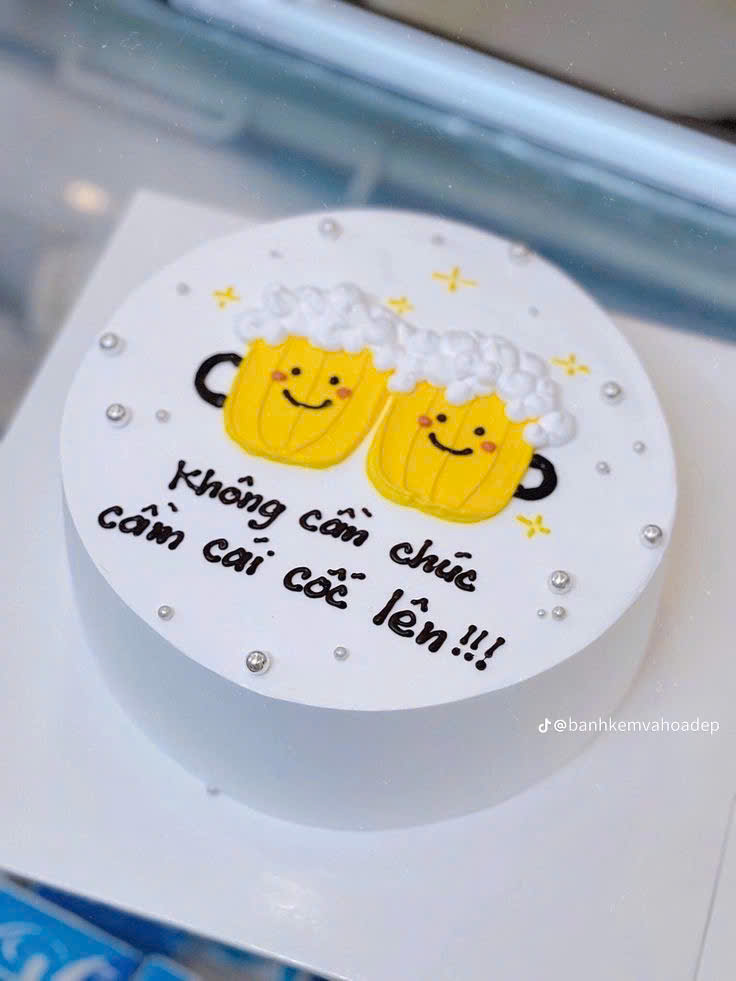 Không cần chúc
cầm cái cốc lên!!!
@banhkemvahoadep